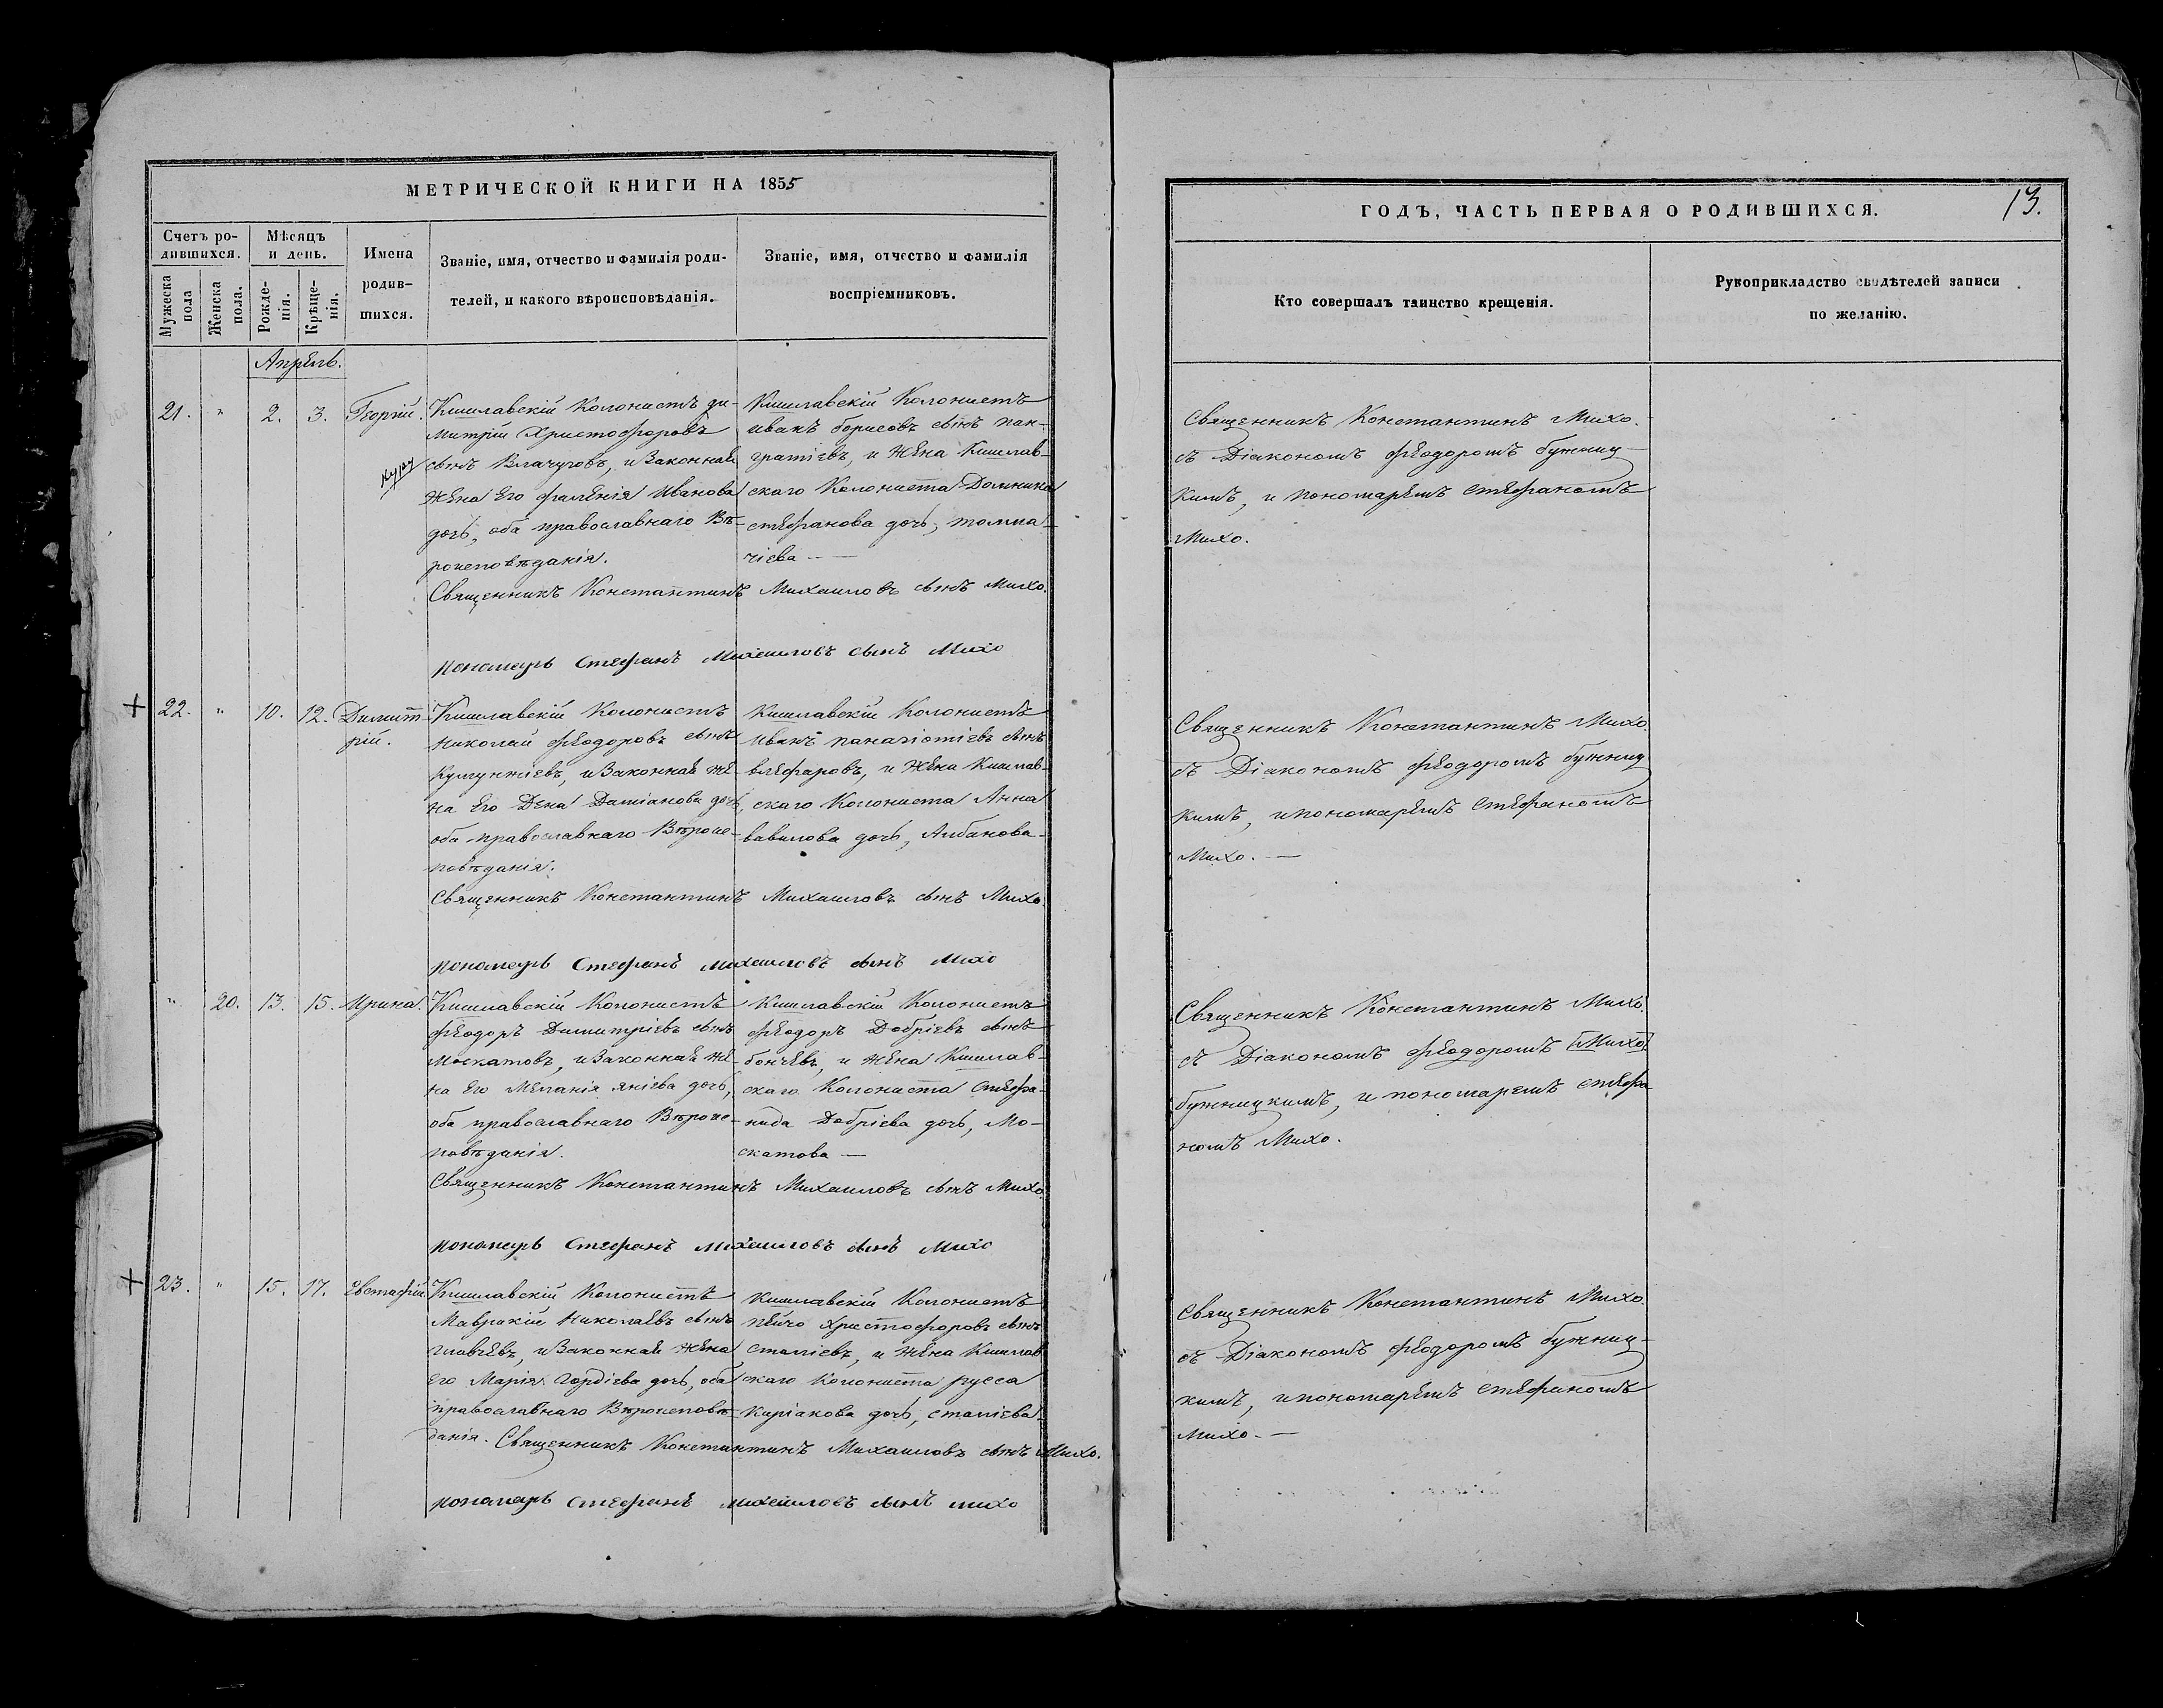 МЕТРИЧЕСКОЙ КНИГИ НА 1855
Счетъ ро-
дившихся.
Мѣсяцъ
и день.
Имена
родив-
шихся.
Званіе, имя, отчество и фамилія роди-
телей, и какого вѣроисповѣданія.
Званіе, имя, отчество и фамилія
воспріемниковъ.
Мужеска
пола
Женска
пола.
Рожде-
нія.
Крѣще-
нія.
Апрель.
21. " 2. 3. Георгій.
Кишлавскій Колонистъ Ди-
митрій Христофоровъ
сынъ Влачуговъ, и Законная
Жена Его Филенія Иванова
дочь, оба православнаго Вѣ-
роисповѣданія.
Кишлавскій Колонистъ
Иванъ Борисовъ сынъ Пан-
гратіевъ, и Жена Кишлав-
скаго Колониста Домника
Стефанова дочь,
чіева --
Священникъ Константинъ Михаиловъ сынъ Михо.
Пономарь Стефанъ Михаиловъ сынъ Михо
22. " 10. 12. Димит-
рій.
Кишлавскій Колонистъ
Николай Феодоровъ сынъ
Кулгунжіевъ, и Законная Же-
на Его Дена Даміанова дочь,
оба православнаго Вѣроис-
повѣданія.
Кишлавскій Колонистъ
Иванъ Панагіотіевъ сынъ
Влефаровъ, и Жена Кишлав-
скаго Колониста Анна
Вавилова дочь, Албанова-
Священникъ Константинъ Михаиловъ сынъ Михо.
Пономарь Стефанъ Михаиловъ сынъ Михо
" 20. 13. 15. Ирина.
Кишлавскій Колонистъ
Феодоръ Димитріевъ сынъ
Москатовъ, и Законная Же-
на Его Меланія Яніева дочь,
оба православнаго Вѣроис-
повѣданія.
Кишлавскій Колонистъ
Феодоръ Добріевъ сынъ
Бончевъ, и Жена Кишлав-
скаго Колониста Стефа-
нида Добріева дочь, Мо-
скатова —
Священникъ Константинъ Михаиловъ сынъ Михо.
Пономарь Стефанъ Михаиловъ сынъ Михо
23. " 15. 17. Евстафій.
Кишлавскій Колонистъ
Маврикій Николаевъ сынъ
Главчевъ, и Законная Жена
Его Марія Гордіева дочь, оба
православнаго Вѣроисповѣ-
данія.
Кишлавскій Колонистъ
Пейчо Христофоровъ сынъ
Сталіевъ, и Жена Кишлав
скаго Колониста Русса
Киріакова дочь, Сталіева-
Священникъ Константинъ Михаиловъ сынъ Михо.
Пономарь Стефанъ Михаиловъ сынъ Михо
ГОДЪ, ЧАСТЬ ПЕРВАЯ О РОДИВШИХСЯ.
13.
Кто совершалъ таинство крещенія.
Рукоприкладство свидѣтелей записи
по желанію.
Священникъ Константинъ Михо.
съ Діакономъ Феодоромъ Бужниц-
кимъ, и пономаремъ Стефаномъ
Михо.
Священникъ Константинъ Михо.
съ Діакономъ Феодоромъ Бужниц
кимъ, и пономаремъ Стефаномъ
Михо. —
Священникъ Константинъ Михо.
съ Діакономъ Феодоромъ [Михо]
Бужницкимъ, и пономаремъ Стефа
номъ Михо.
Священникъ Константинъ Михо.
съ Діакономъ Феодоромъ Бужниц-
кимъ, и пономаремъ Стефаномъ
Михо. —